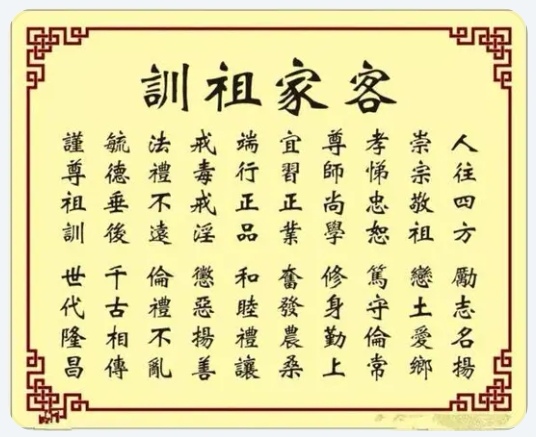 客家祖訓
人往四方 勵志名揚
崇宗敬祖 戀土愛鄉
孝悌忠恕 篤守倫常
尊師尚學 修身勤上
宜習正業 奮發農桑
端行正品 和睦禮讓
戒毒戒淫 懲惡揚善
法禮不遠 倫禮不亂
毓德垂後 千古相傳
謹尊祖訓 世代隆昌